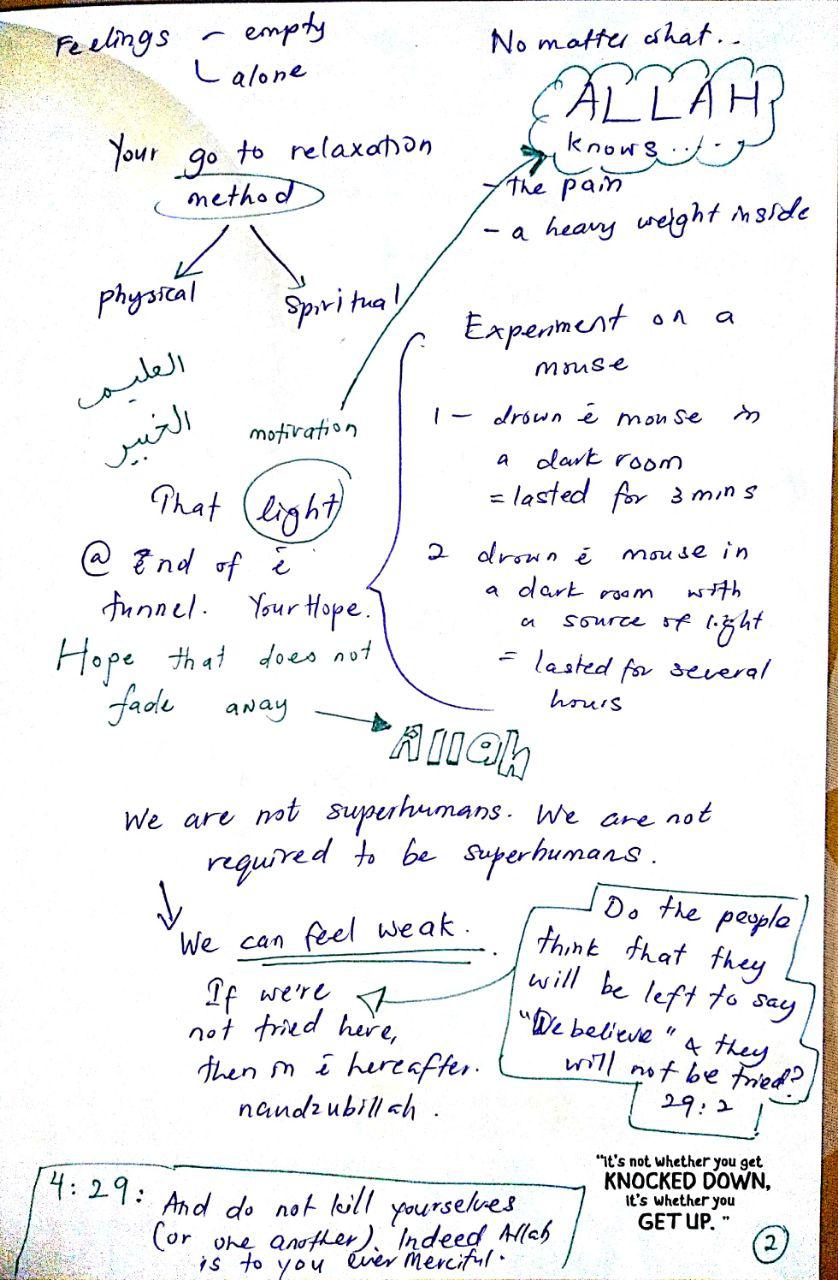 Feelings - empty
alone
Your go to relaxation
method
physical
Spiritual
العليم
الخبير
motivation
That light
@ End of ē
funnel. Your Hope.
Hope that does not
fade away
Allah
No matter what..
ALLAH
knows.....
- the pain
- a heavy weight inside
Experiment on a
mouse
1 - drown ē mouse in
a dark room
= lasted for 3 mins
2 drown ē mouse in
a dark room with
a source of light
= lasted for several
hours
We are not superhumans. We are not
required to be superhumans.
We can feel weak.
If we're
not tried here,
then in ē hereafter.
naudzubillah.
Do the people
think that they
will be left to say
"We believe" & they
will not be tried?
29:2
4:29: And do not kill yourselves
(or one another). Indeed Allah
is to you ever Merciful.
"It's not whether you get
KNOCKED DOWN,
it's whether you
GET UP."
2